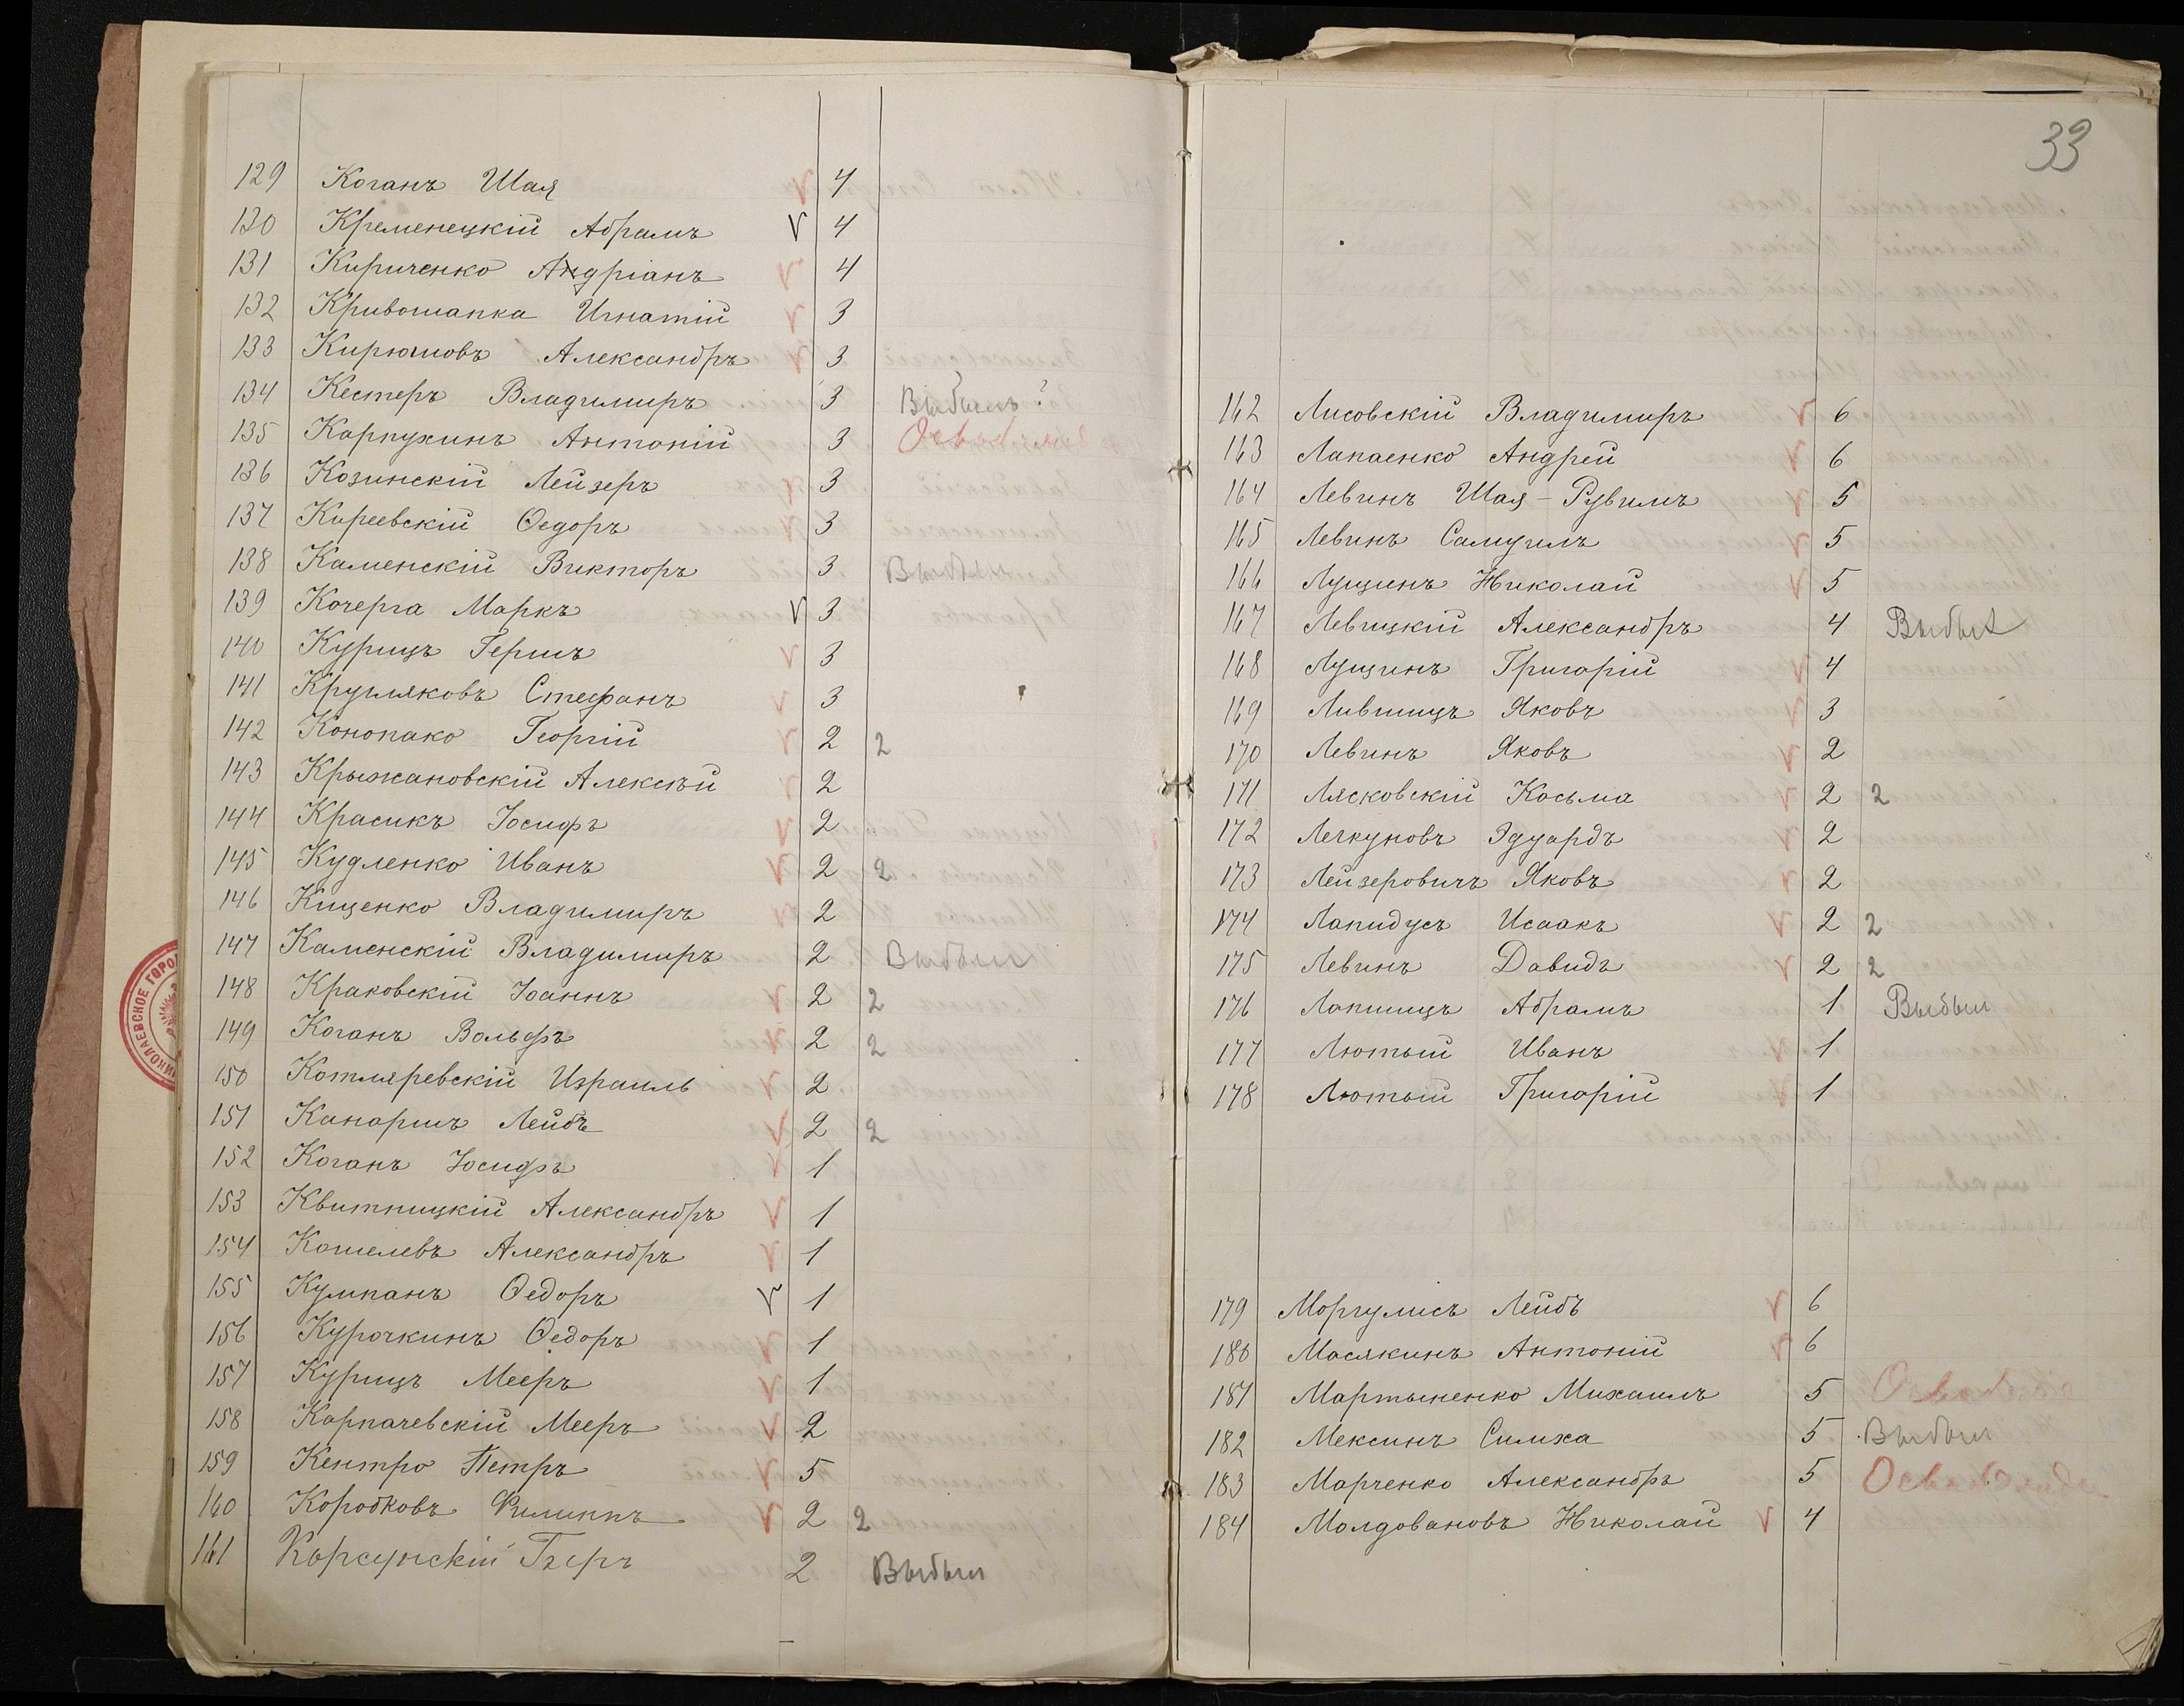 129 Коганъ Шая V 4
130 Кременецкій Абрамъ V 4
131 Кириченко Андріанъ V 4
132 Кривошапка Игнатій V 3
133 Кирюшовъ Александръ V 3
134 Кестеръ Владимиръ 3 Выбылъ?
135 Карпухинъ Антоній 3
136 Козинскій Лейзеръ V 3
137 Киреевскій Ѳедоръ V 3
138 Каменскій Викторъ 3 Выбылъ
139 Кочерга Маркъ V 3
140 Курицъ Гершъ V 3
141 Кругляковъ Стефанъ V 3
142 Конопако Георгій V 2 2
143 Крыжановскій Алексѣй V 2
144 Красикъ Іосифъ V 2
145 Кудленко Иванъ V 2 2
146 Кищенко Владимиръ V 2
147 Каменскій Владимиръ 2 Выбылъ
148 Краковскій Іоаннъ V 2 2
149 Коганъ Вольфъ V 2 2
150 Котляревскій Израиль V 2
151 Канаршъ Лейбъ V 2 2
152 Коганъ Іосифъ V 1
153 Квитницкій Александръ V 1
154 Кошелевъ Александръ V 1
155 Кулпанъ Ѳедоръ V 1
156 Курочкинъ Ѳедоръ V 1
157 Курицъ Мееръ V 1
158 Карпачевскій Мееръ V 2
159 Кентро Петръ V 5
160 Коробковъ Филиппъ V 2 2
161 Корсунскій 2 Выбыл
33
162 Лисовскій Владимиръ V 6
163 Лапаенко Андрей V 6
164 Левинъ Шая-Рувимъ V 5
165 Левинъ Самуилъ V 5
166 Лущинъ Николай V 5
167 Левицкій Александръ 4 Выбыл
168 Лущинъ Григорій V 4
169 Лившицъ Яковъ V 3
170 Левинъ Яковъ V 2
171 Лясковскій Косьма V 2 2
172 Легкуновъ Эдуардъ V 2
173 Лейзеровичъ Яковъ V 2
174 Лапидусъ Исаакъ V 2 2
175 Левинъ Давидъ V 2 2
176 Лапшицъ Абрамъ 1 Выбыл
177 Лютый Иванъ V 1
178 Лютый Григорій V 1
179 Моргулисъ Лейбъ V 6
180 Масякинъ Антоній V 6
181 Мартыненко Михаилъ 5
182 Мексинъ Симха 5 Выбыл
183 Марченко Александръ 5
184 Молдовановъ Николай V 4